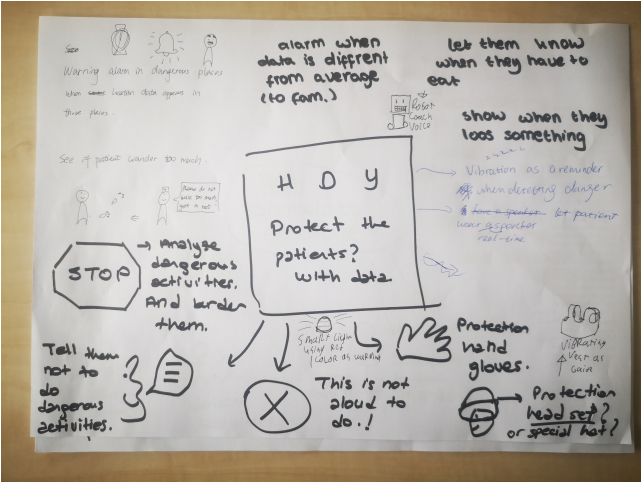 Warning alarm in dangerous places
when location data appears in
those places.
See if patient wander too much.
Please do not
walk too much
take a rest
alarm when
data is diffrent
from average
(to fam.)
let them know
when they have to
eat
Robot
Coach
Voice
show when they
loos something
Vibration as a reminder
when detecting danger
let patient
wear a speaker
real-time
H D Y
Protect the
patients?
with data
STOP
→ Analyze
dangerous
activities.
And
them.
Tell them
not to
do
dangerous
activities.
Smart Light
using RED
COLOR as warning
X
This is not
aloud to
do.!
Protection
hand
gloves.
Vibrating
Vest as
Protection
head set?
or special hat?